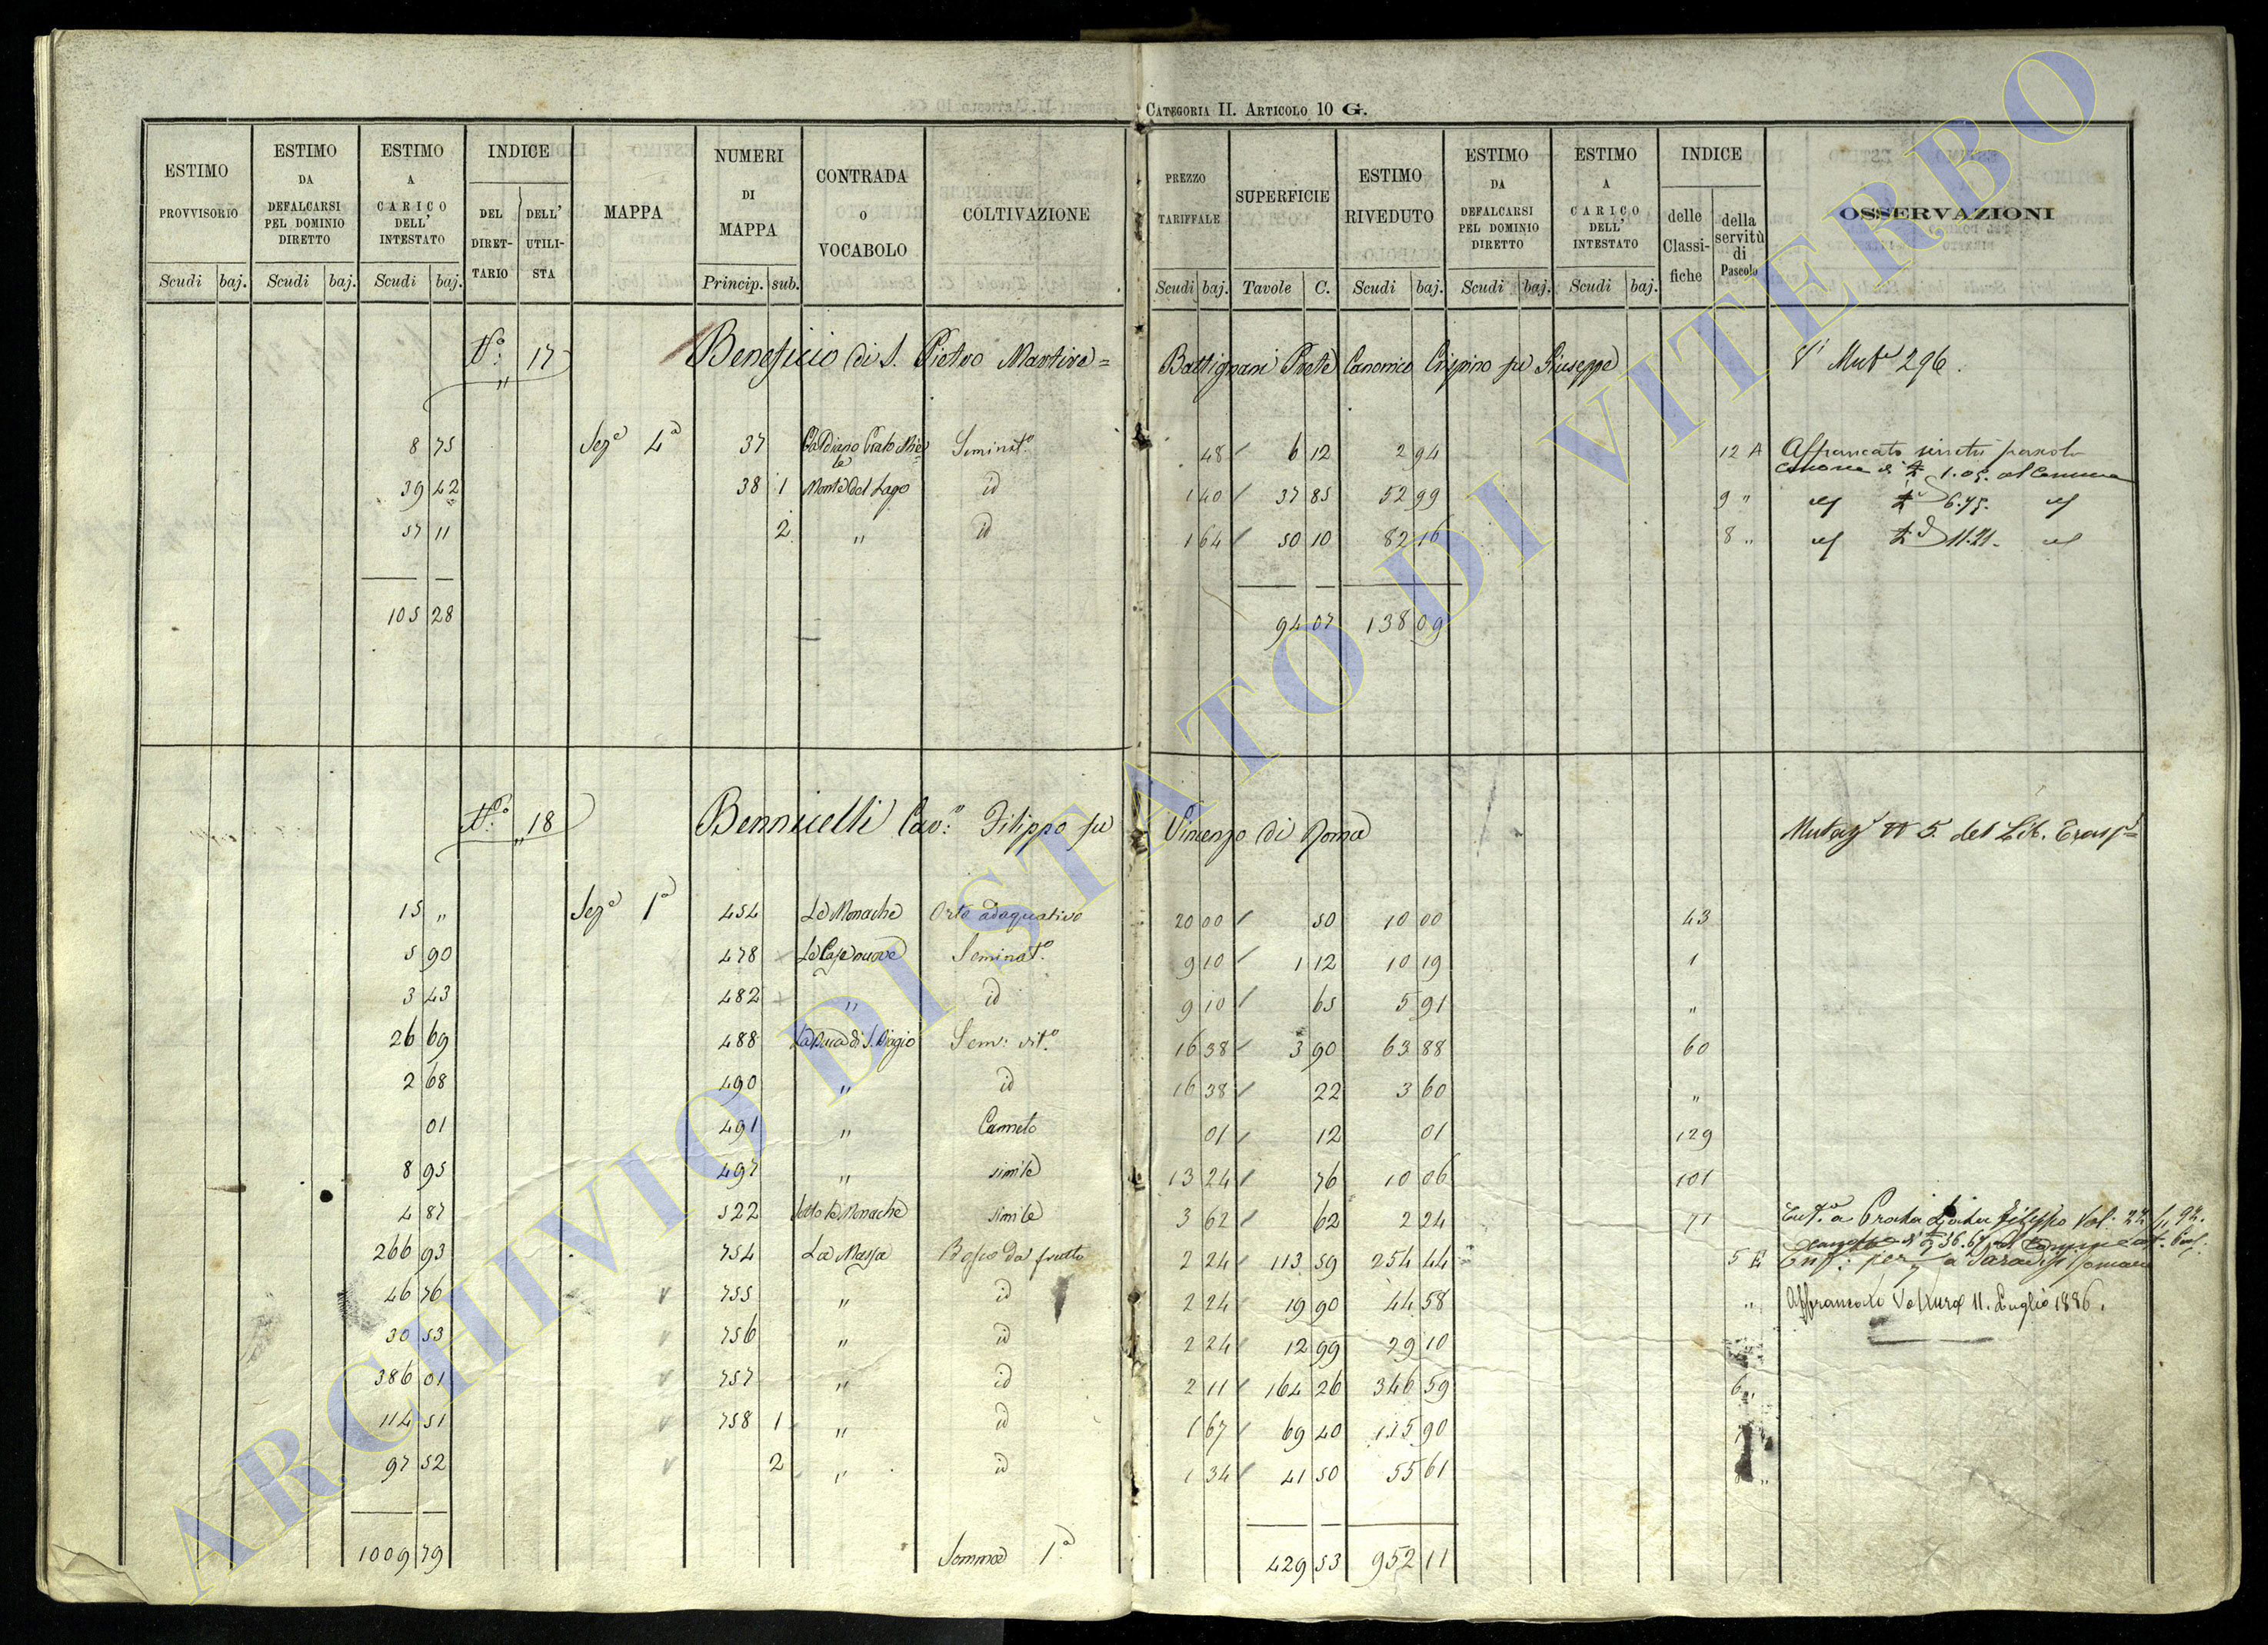 CATEGORIA II. ARTICOLO 10 G.
ESTIMO PROVVISORIO Scudi baj.
ESTIMO DA DEFALCARSI PEL DOMINIO DIRETTO Scudi baj.
ESTIMO A CARICO DELL' INTESTATO Scudi baj.
INDICE DEL DIRET-TARIO DELL' UTILI-STA
MAPPA
NUMERI DI MAPPA Princip. sub.
CONTRADA O VOCABOLO
COLTIVAZIONE
PREZZO TARIFFALE Scudi baj.
SUPERFICIE Tavole C.
ESTIMO RIVEDUTO Scudi baj.
ESTIMO DA DEFALCARSI PEL DOMINIO DIRETTO Scudi baj.
ESTIMO A CARICO DELL' INTESTATO Scudi baj.
INDICE delle Classi-fiche della servitù di Pascolo
OSSERVAZIONI
N.º 17 Beneficio di S. Pietro Martire = Battignani Prete Canonico Crispino fu Giuseppe Mutª 296.
8 75 Sezª 4ª 37 Seminatº 48 6 12 2 94 12 A Affrancato servitù pascolo
canone di 1.05. al Comune
39 42 38 1 Monte del Lago id 1 40 37 85 52 99 9 " 6.75.
57 11 2 " id 1 64 50 10 82 16 8 " 11.21.
105 28 94 07 138 09
N.º 18 Bennicelli Cav.º Filippo fu Vincenzo di Roma Mutazº Nº 5. del Lib. Trasp=
15 " Sezª 1ª 454 Le Monache Orto adaquativo 20 00 50 10 00 43
5 90 478 Le Case nuove Seminatº. 9 10 1 12 10 19 1
3 43 482 " id 9 10 65 5 91 "
26 69 488 La Ruca di S. Biagio Sem: vitº 16 38 3 90 63 88 60
2 68 490 " id 16 38 22 3 60 "
01 491 " Canneto 01 12 01 129
8 95 497 " simile 13 24 76 10 06 101
4 87 522 Sotto le Monache simile 3 62 62 2 24 71
266 93 754 La Massa Bosco da frutto 2 24 113 59 254 44 5 E
46 76 755 " id 2 24 19 90 44 58 " Affrancato Voltura 11. Luglio 1886.
30 53 756 " id 2 24 12 99 29 10
386 01 757 " id 2 11 164 26 346 59 6 "
114 51 758 1 " id 1 67 69 40 115 90
97 52 2 " id 1 34 41 50 55 61
1009 79 Somma 1ª 429 53 952 11
ARCHIVIO DI STATO DI VITERBO